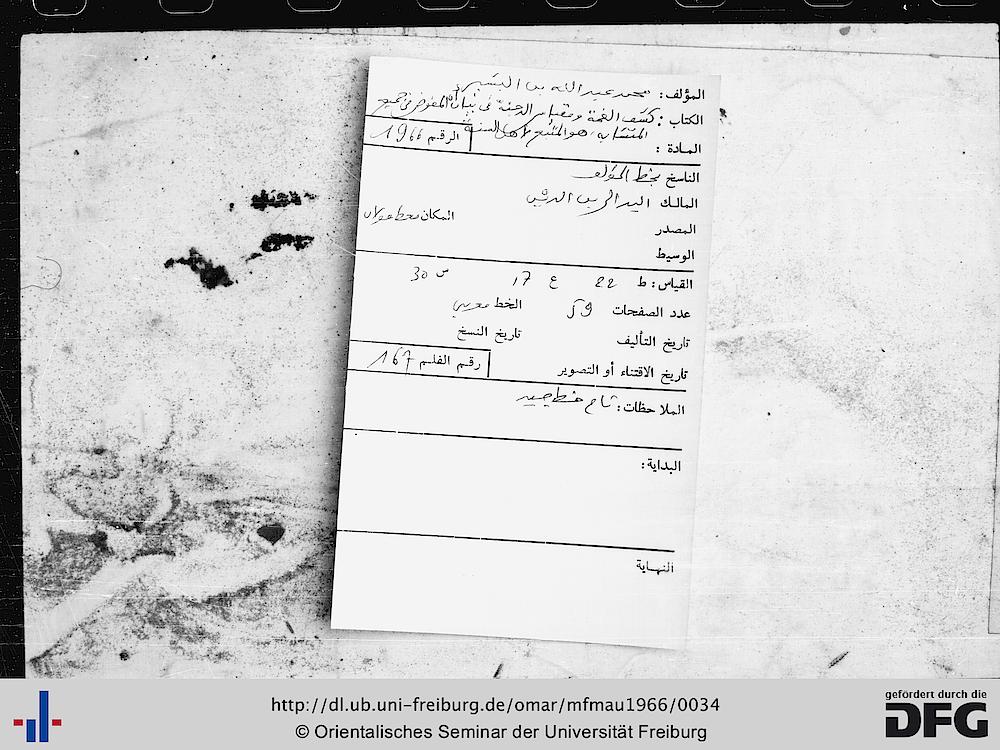 المؤلف: محمد عبد الله بن البشير
الكتاب: كشف الغمة ومقياس الدجنة في بيان المفوض في جميع
المتشابه هو المتبع لأهل السنة
المادة: الرقم 1966
الناسخ بخط المؤلف
المالك
المصدر المكان
الوسيط
القياس: ط 22 ع 17 س 30
عدد الصفحات 59 الخط مغربي
تاريخ التأليف تاريخ النسخ
تاريخ الاقتناء أو التصوير رقم الفلم 167
الملاحظات: تام خط جيد
البداية:
النهاية
http://dl.ub.uni-freiburg.de/omar/mfmau1966/0034
© Orientalisches Seminar der Universität Freiburg
gefördert durch die
DFG